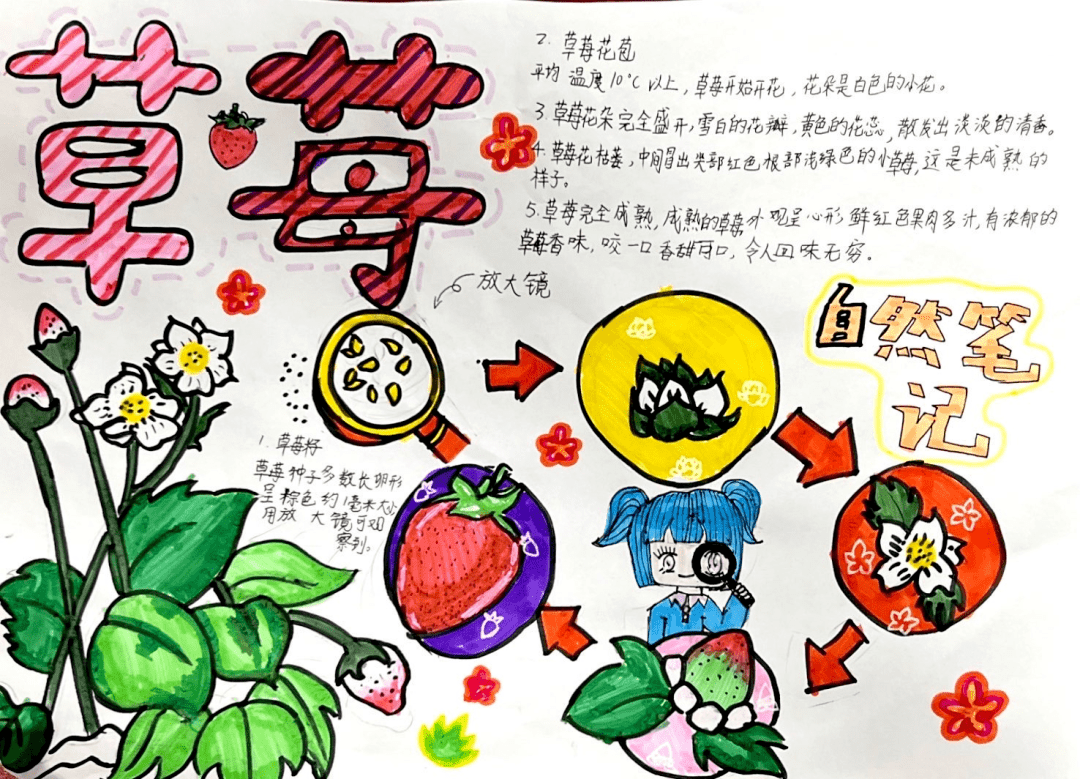 草莓
2. 草莓花苞
平均温度10℃以上，草莓开始开花，花朵是白色的小花。
3.草莓花朵完全盛开，雪白的花瓣，黄色的花蕊，散发出淡淡的清香。
4.草莓花枯萎，中间冒出尖部红色根部浅绿色的小草莓，这是未成熟的
样子。
5.草莓完全成熟，成熟的草莓外观呈心形鲜红色果肉多汁，有浓郁的
草莓香味，咬一口香甜可口，令人回味无穷。
放大镜
自然笔
记
1.草莓籽
草莓种子多数长卵形
呈棕色约1毫米大小
用放大镜可观
察到。